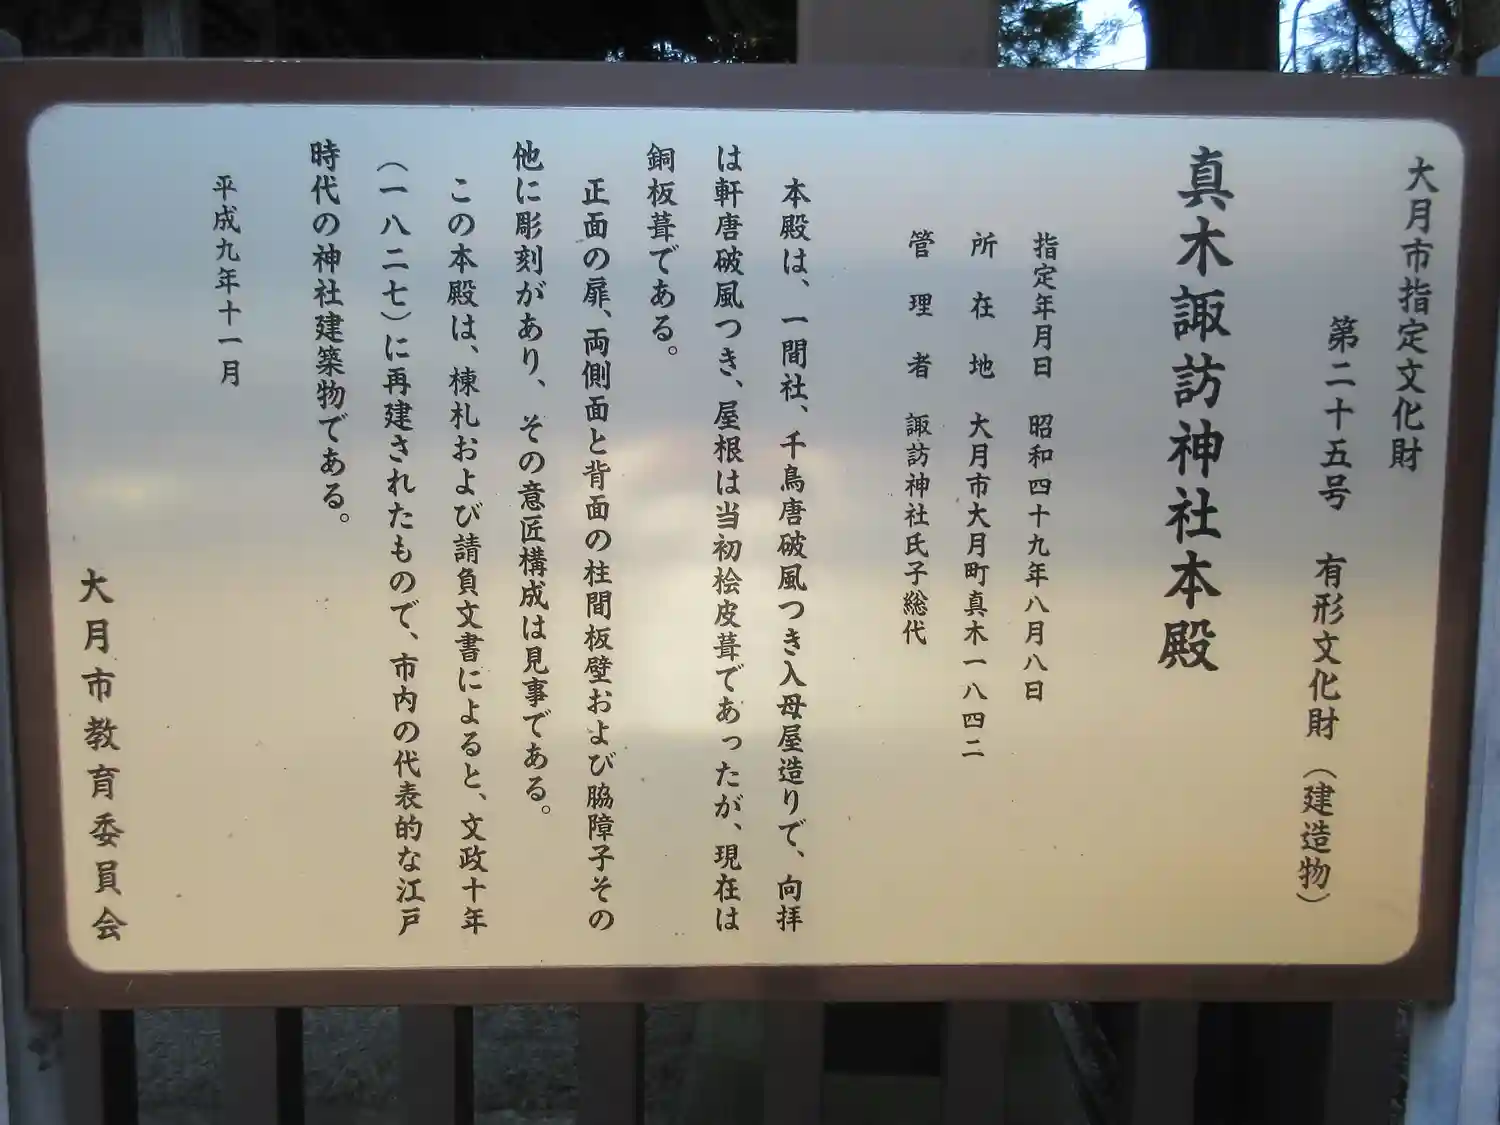 大月市指定文化財
第二十五号　有形文化財（建造物）
真木諏訪神社本殿
指定年月日　昭和四十九年八月八日
所在地　大月市大月町真木一八四二
管理者　諏訪神社氏子総代
本殿は、一間社、千鳥唐破風つき入母屋造りで、向拝
は軒唐破風つき、屋根は当初桧皮葺であったが、現在は
銅板葺である。
正面の扉、両側面と背面の柱間板壁および脇障子その
他に彫刻があり、その意匠構成は見事である。
この本殿は、棟札および請負文書によると、文政十年
（一八二七）に再建されたもので、市内の代表的な江戸
時代の神社建築物である。
平成九年十一月
大月市教育委員会